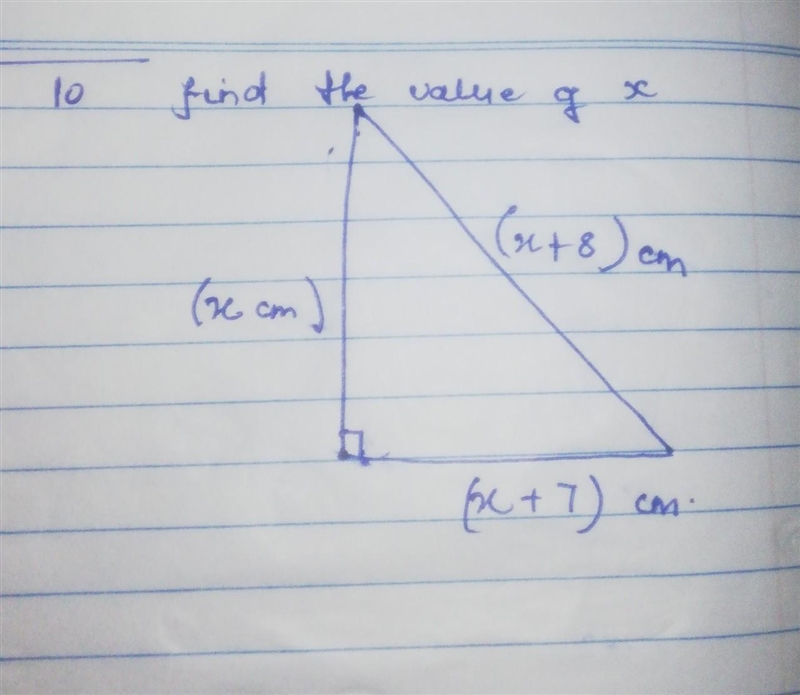 10 find the value of x
(x+8) cm
(x cm)
(x+7) cm.